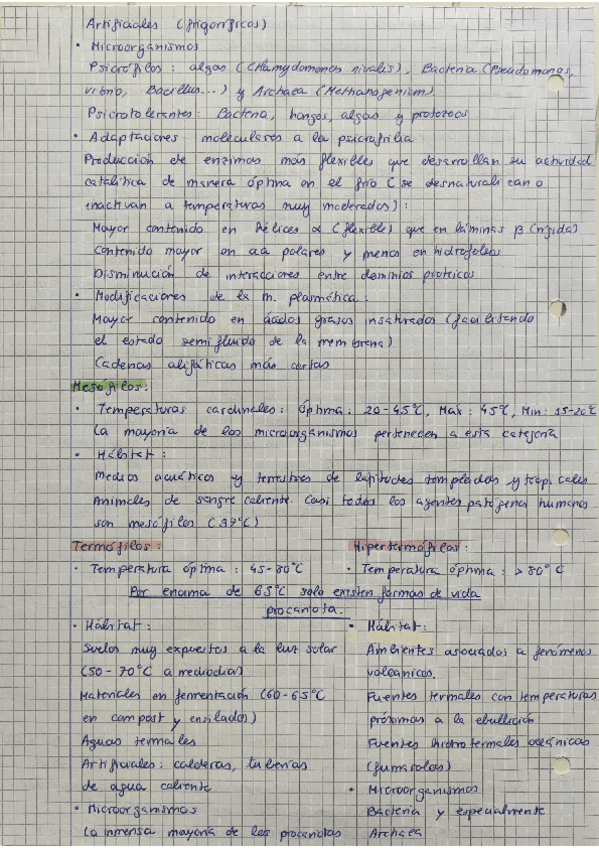 Artificiales (frigoríficos)
• Microorganismos
Psicrófilos: algas (Chamydomonas nivales), Bacteria (Pseudomonas,
vibrio, Bacillus...) y Archaea (Methanogenium)
Psicrotolerantes: Bacteria, hongos, algas y protozoos
• Adaptaciones moleculares a la psicrofilia
Producción de enzimas más flexibles que desarrollan su actividad
catalítica de manera óptima en el frío (se desnaturalizan o
inactivan a temperaturas muy moderadas):
Mayor contenido en hélices α (flexibles) que en láminas β (rígida)
Contenido mayor en aa polares y menos en hidrófobos
Disminución de interacciones entre dominios proteicos
• Modificaciones de la m. plasmática:
Mayor contenido en ácidos grasos insaturados (facilitando
el estado semifluido de la membrana)
Cadenas alifáticas más cortas
Mesófilos:
• Temperaturas cardinales: óptima: 20-45ºC, Max: 45ºC, Min: 15-20ºC
La mayoría de los microorganismos pertenecen a esta categoría
• Hábitat:
Medios acuáticos y terrestres de latitudes templadas y tropicales
Animales de sangre caliente. Casi todos los agentes patógenos humanos
son mesófilos (37ºC)
Termófilos:
• Temperatura óptima: 45-80ºC
Hipertermófilos:
• Temperatura óptima: >80ºC
Por encima de 65ºC solo existen formas de vida
procariota.
• Hábitat:
Suelos muy expuestos a la luz solar
(50-70ºC a mediodía)
Materiales en fermentación (60-65ºC
en compost y ensilados)
Aguas termales
Artificiales: calderas, tuberías
de agua caliente
• Microorganismos
La inmensa mayoría de los procariotas
• Hábitat:
Ambientes asociados a fenómenos
volcánicos.
Fuentes termales con temperaturas
próximas a la ebullición
Fuentes hidrotermales oceánicas
(fumarolas)
• Microorganismos
Bacteria y especialmente
Archaea